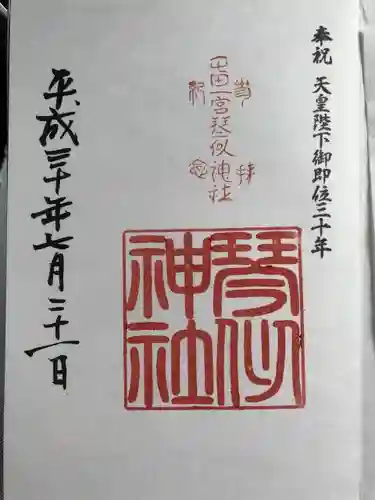 奉祝 天皇陛下御即位三十年
屯田一宮琴似神社
參拝
紀念
琴似
神社
平成三十年七月二十一日